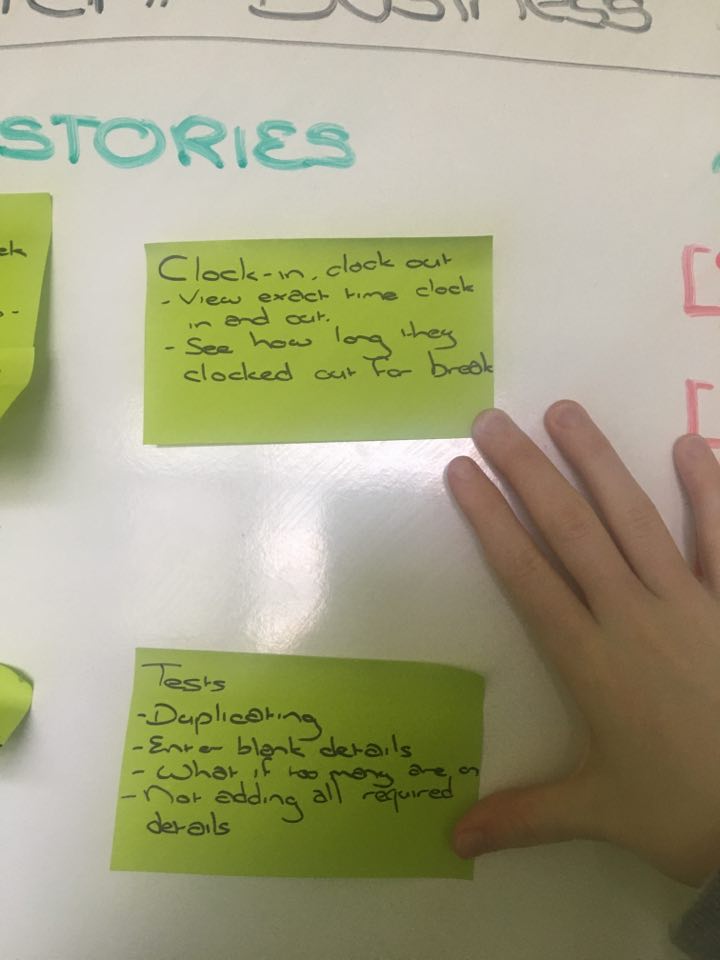 BUSINESS
STORIES
Clock-in, clock out
- View exact time clock
in and out.
- See how long they
clocked out for break
Tests
- Duplicating
- Enter blank details
- What if too many are on
- Not adding all required
details